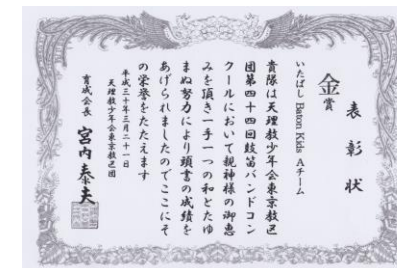 表彰状
金賞
いたばし Baton Kids Aチーム
貴隊は天理教少年会東京教区
団第四十四回鼓笛バンドコン
クールにおいて親神様の御恵
みを頂き一手一つの和とたゆ
まぬ努力により頭書の成績を
あげられましたのでここにそ
の栄誉をたたえます
平成三十年三月二十一日
天理教少年会東京教区団
育成会長 宮内 夫